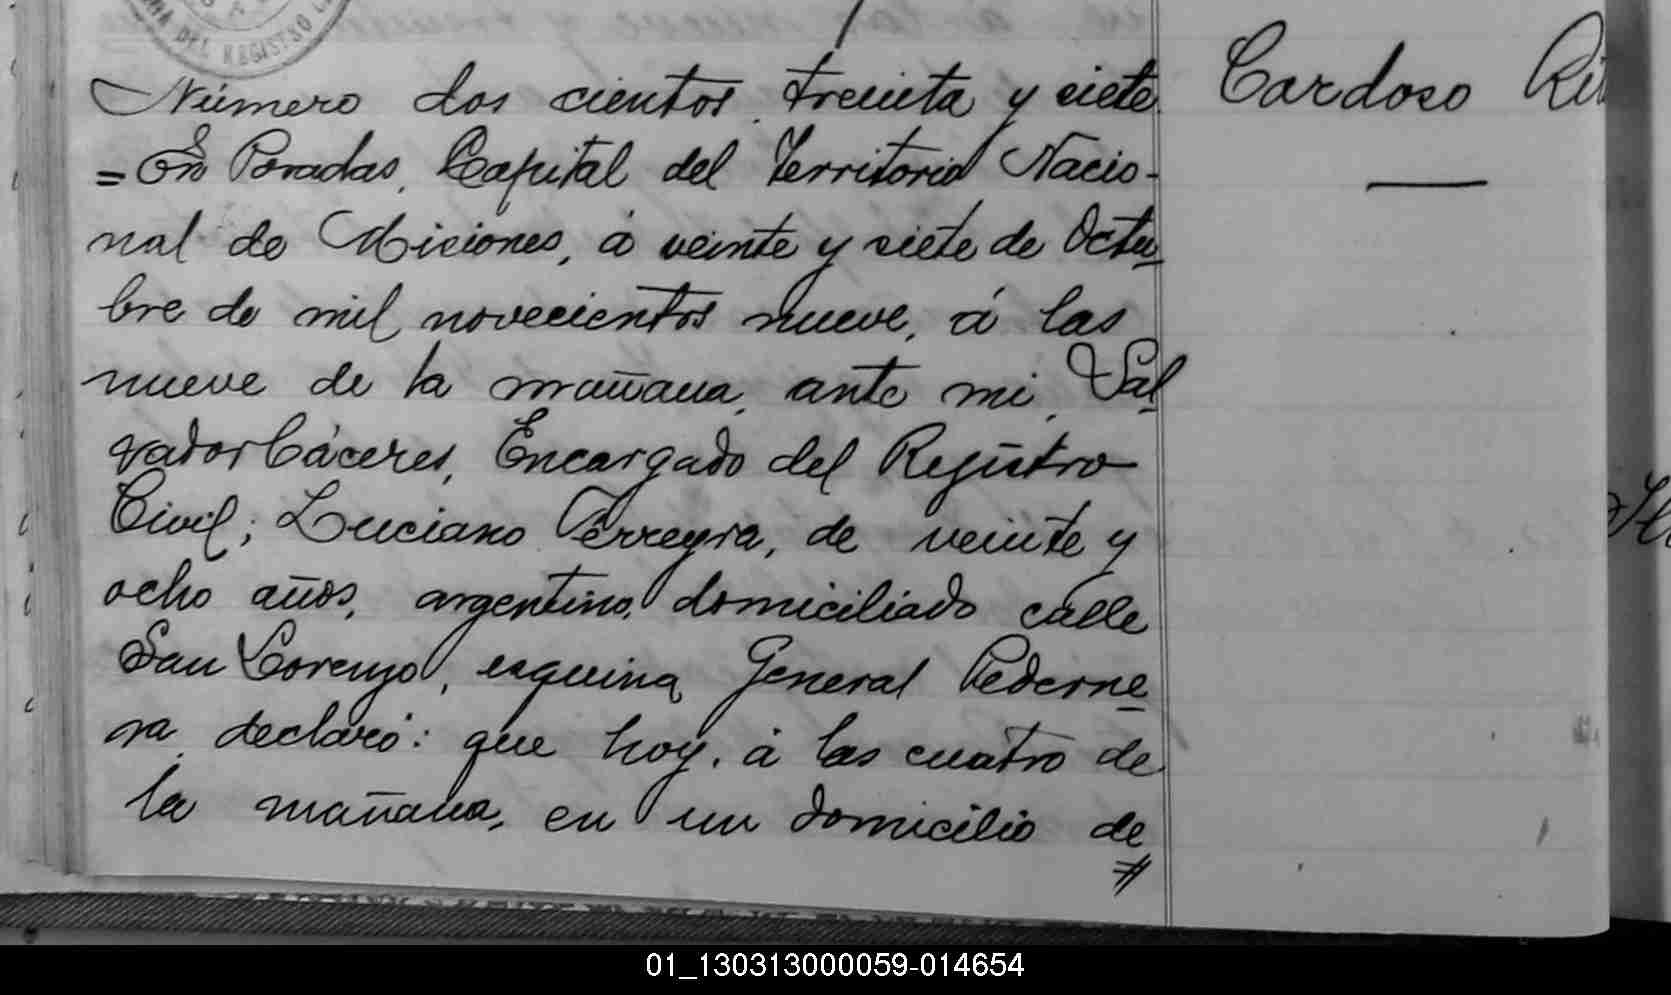 DEL REGISTRO
Número dos cientos treinta y siete
= En Posadas, Capital del Territorio Nacio-
nal de Misiones, á veinte y siete de Octu-
bre de mil novecientos nueve, á las
nueve de la mañana, ante mi, Sal-
vador Cáceres, Encargado del Registro
Civil; Luciano Ferreyra, de veinte y
ocho años, argentino, domiciliado calle
San Lorenzo, esquina General Pederne-
ra, declaró: que hoy, á las cuatro de
la mañana, en un domicilio de
Cardoso Rit
01_130313000059-014654